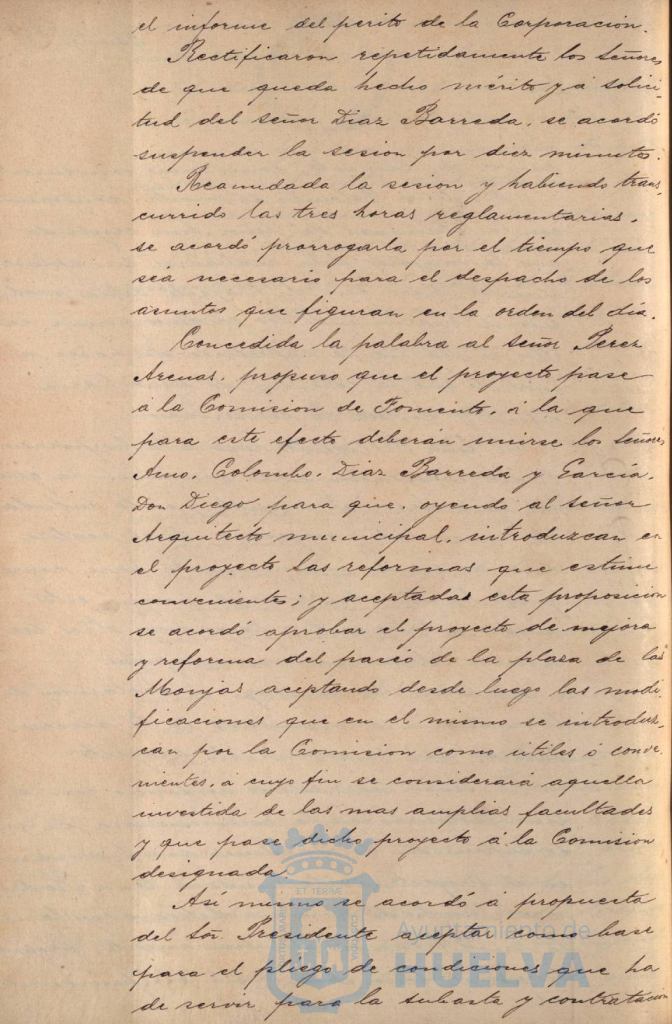 el informe del perito de la Corporacion.
Rectificaron repetidamente los señores
de que queda hecho mérito y á solici-
tud del señor Diaz Barreda, se acordó
suspender la sesion por diez minutos.
Reanudada la sesion y habiendo trans-
currido las tres horas reglamentarias,
se acordó prorrogarla por el tiempo que
sea necesario para el despacho de los
asuntos que figuran en la orden del dia.
Concedida la palabra al señor Perez
Arenas, propuso que el proyecto pase
á la Comision de Fomento, á la que
para este efecto deberán unirse los señores
Amo, Colombo, Diaz Barreda y García,
Don Diego para que, oyendo al señor
Arquitecto municipal, introduzcan en
el proyecto las reformas que estime
convenientes; y aceptada esta proposicion
se acordó aprobar el proyecto de mejora
y reforma del paseo de la plaza de las
Monjas aceptando desde luego las modi-
ficaciones que en el mismo se introduz-
can por la Comision como útiles ó conve-
nientes, á cuyo fin se considerará aquella
investida de las mas amplias facultades
y que pase dicho proyecto á la Comision
designada.
Así mismo se acordó á propuesta
del Sor. Presidente aceptar como base
para el pliego de condiciones que ha
de servir para la subasta y contratacion
Ayuntamiento de
HUELVA